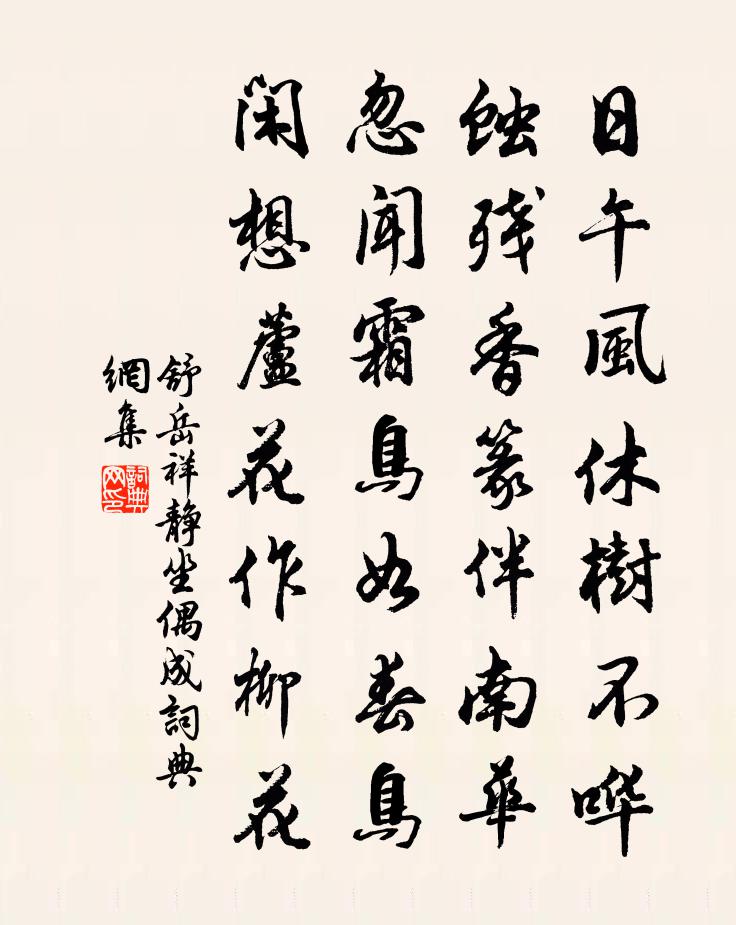 日午風休樹不哗
蚀残香篆伴南華
忽闻霜鳥如春鳥
闲想蘆花作柳花
舒岳祥静坐偶成詞典
網集
詞典
网印